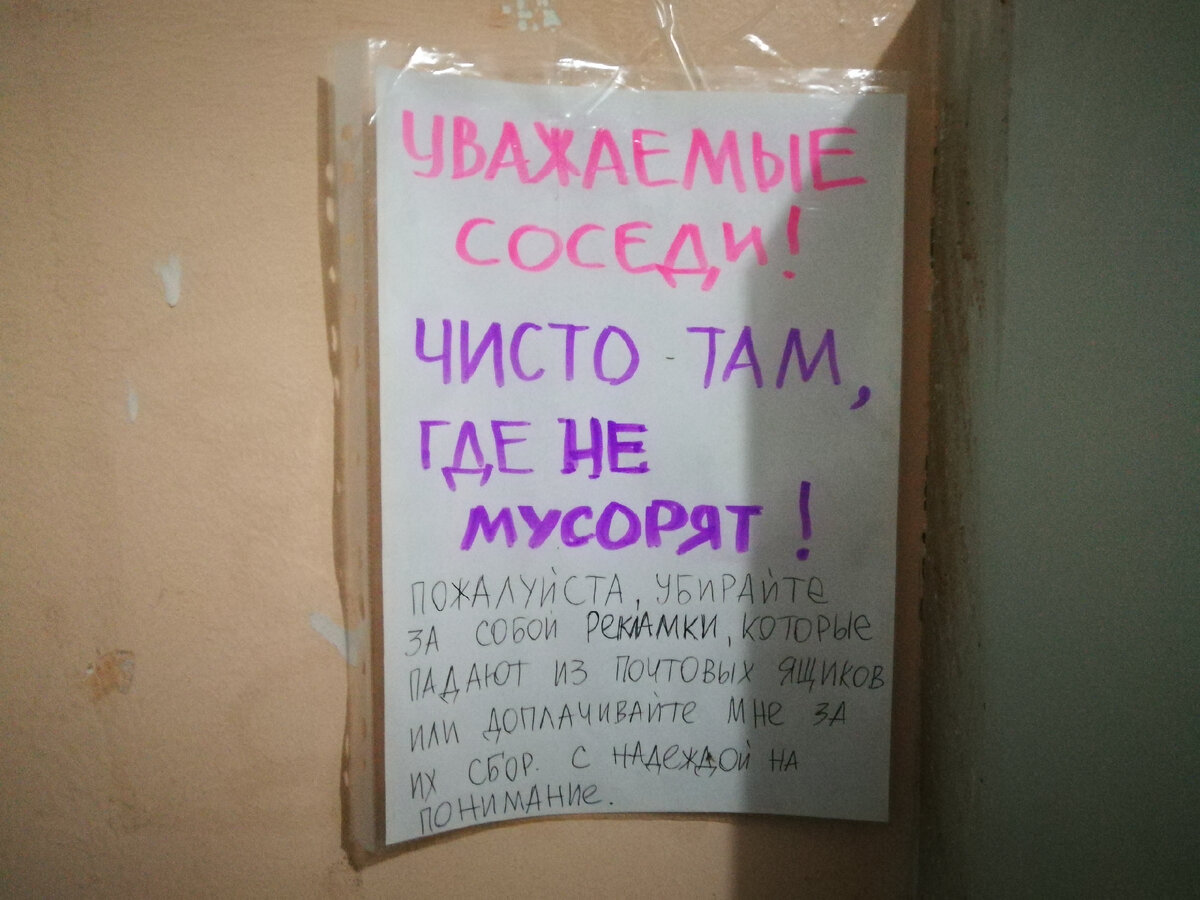 УВАЖАЕМЫЕ
СОСЕДИ!
ЧИСТО - ТАМ,
ГДЕ НЕ
МУСОРЯТ!
ПОЖАЛУЙСТА, УБИРАЙТЕ
ЗА СОБОЙ РЕКЛАМКИ, КОТОРЫЕ
ПАДАЮТ ИЗ ПОЧТОВЫХ ЯЩИКОВ
ИЛИ ДОПЛАЧИВАЙТЕ МНЕ ЗА
ИХ СБОР. С НАДЕЖДОЙ НА
ПОНИМАНИЕ.